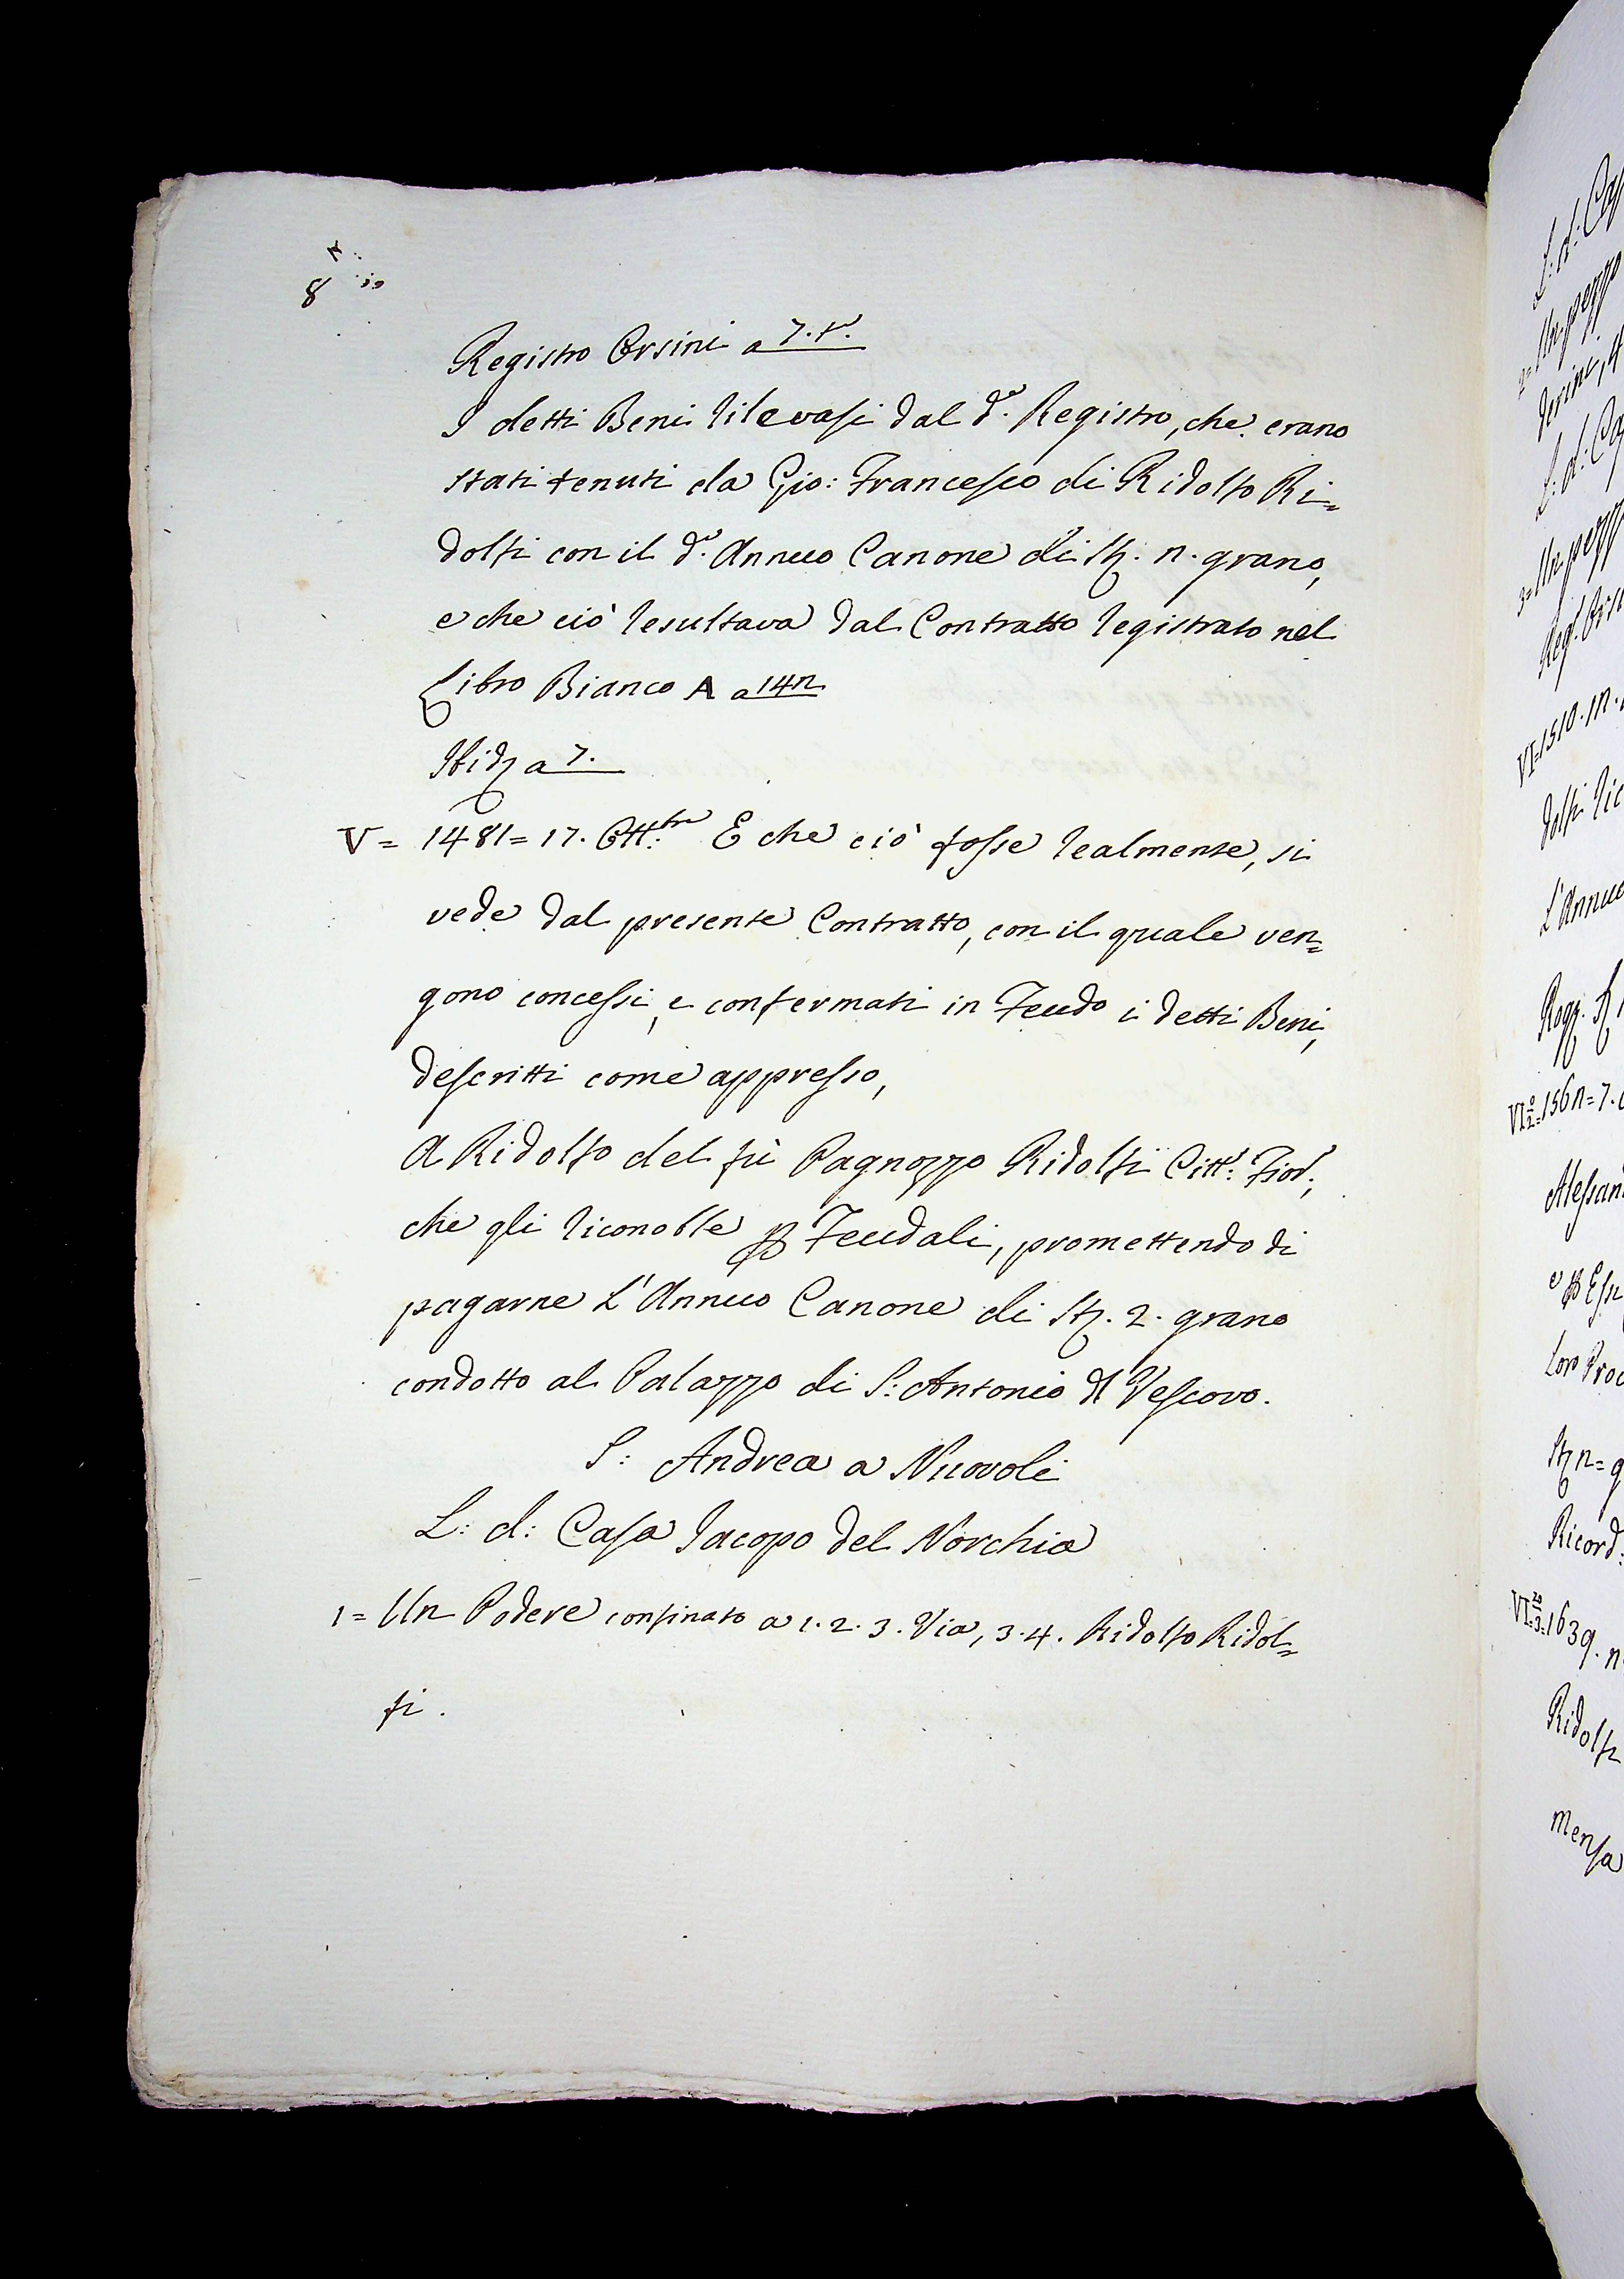 8
Registro Orsini a 7. t.º
I detti Beni rilevasi dal d.º Registro, che erano
stati tenuti da Gio: Francesco di Ridolfo Ri=
dolfi con il d.º Annuo Canone di St. n. grano,
e che ciò resultava dal Contratto registrato nel
Libro Bianco A a 14n
Ibid. a 7.
V = 1481 = 17. Ott:bre E che ciò fosse realmente, si
vede dal presente Contratto, con il quale ven=
gono concessi, e confermati in Feudo i detti Beni,
descritti come appresso,
A Ridolfo del fù Pagnozzo Ridolfi Citt: Fior:,
che gli riconobbe p Feudali, promettendo di
pagarne L'Annuo Canone di St. 2. grano
condotto al Palazzo di S: Antonio dl Vescovo.
S: Andrea a Nuovoli
L: d: Casa Iacopo del Norchia
1 = Un Podere confinato a 1. 2. 3. Via, 3. 4. Ridolfo Ridol=
fi.
L: d:
2= Un pezzo
L: d:
3= Un pezz
VI=1510.
dolfi ric
L'Annuo
156n=7.
Alessan
e p
Loro Proc
St n=
Ricord:
1639. n
Ridolfi
Mensa